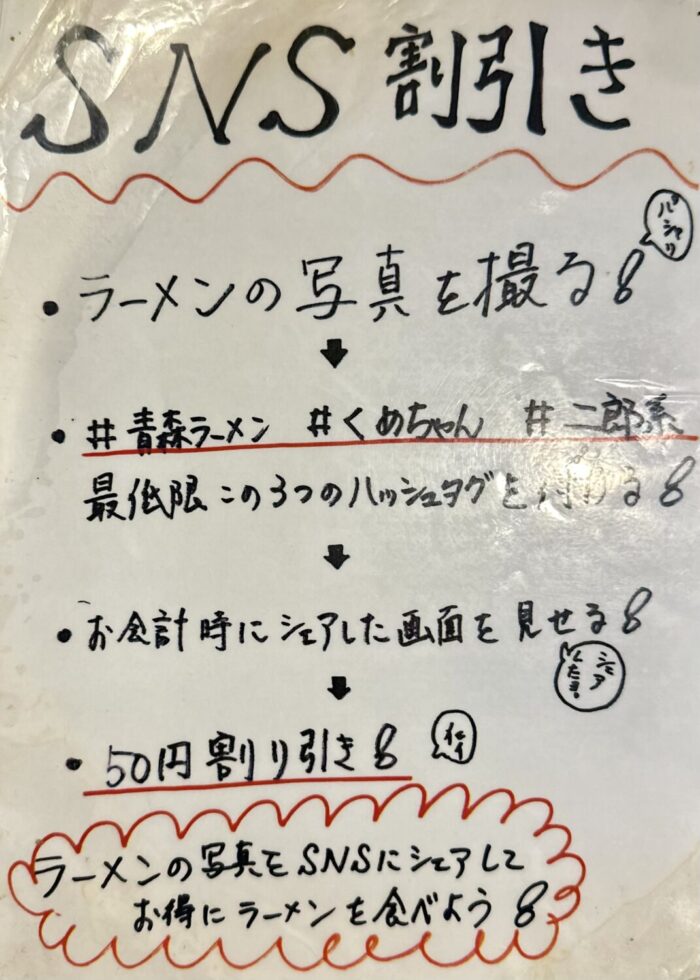 SNS割引き
パシャリ
・ラーメンの写真を撮る!
・#青森ラーメン #くめちゃん #二郎系
最低限この3つのハッシュタグを付ける!
・お会計時にシェアした画面を見せる!
シェアしたよ!
・50円割り引き!
ラーメンの写真をSNSにシェアして
お得にラーメンを食べよう!